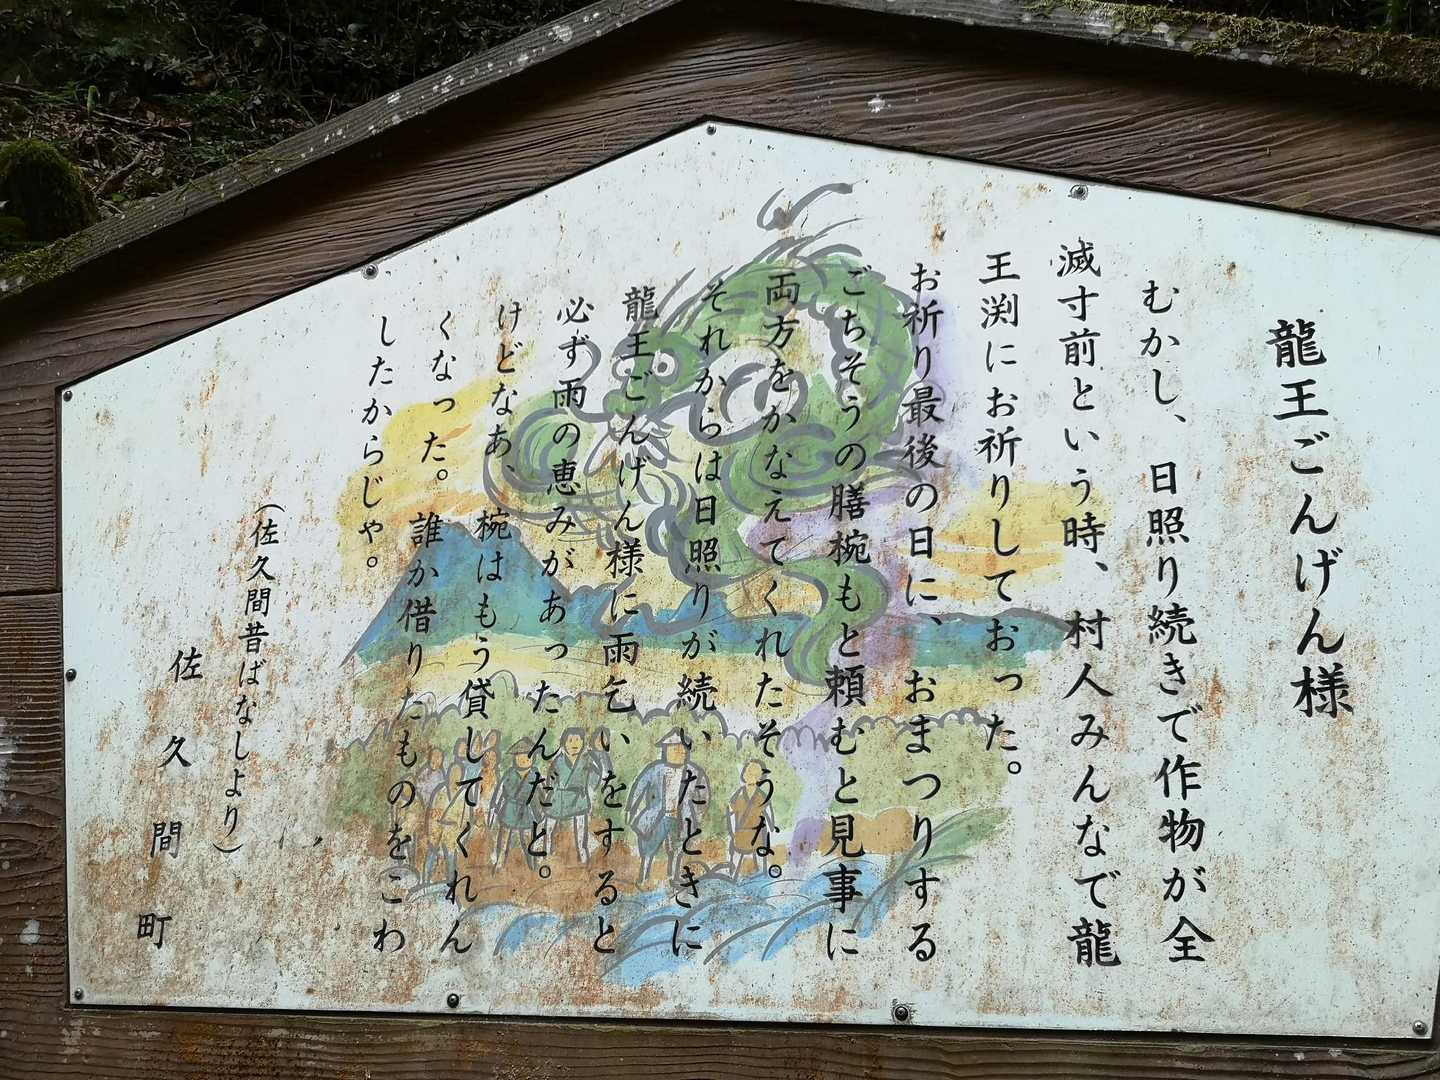 龍王ごんげん様
むかし、日照り続きで作物が全
滅寸前という時、村人みんなで龍
王渕にお祈りしておった。
お祈り最後の日に、おまつりする
ごちそうの膳椀もと頼むと見事に
両方をかなえてくれたそうな。
それからは日照りが続いたときに
龍王ごんげん様に雨乞いをすると
必ず雨の恵みがあったんだと。
けどなあ、椀はもう貸してくれん
くなった。誰か借りたものをこわ
したからじゃ。
(佐久間昔ばなしより)
佐久間町